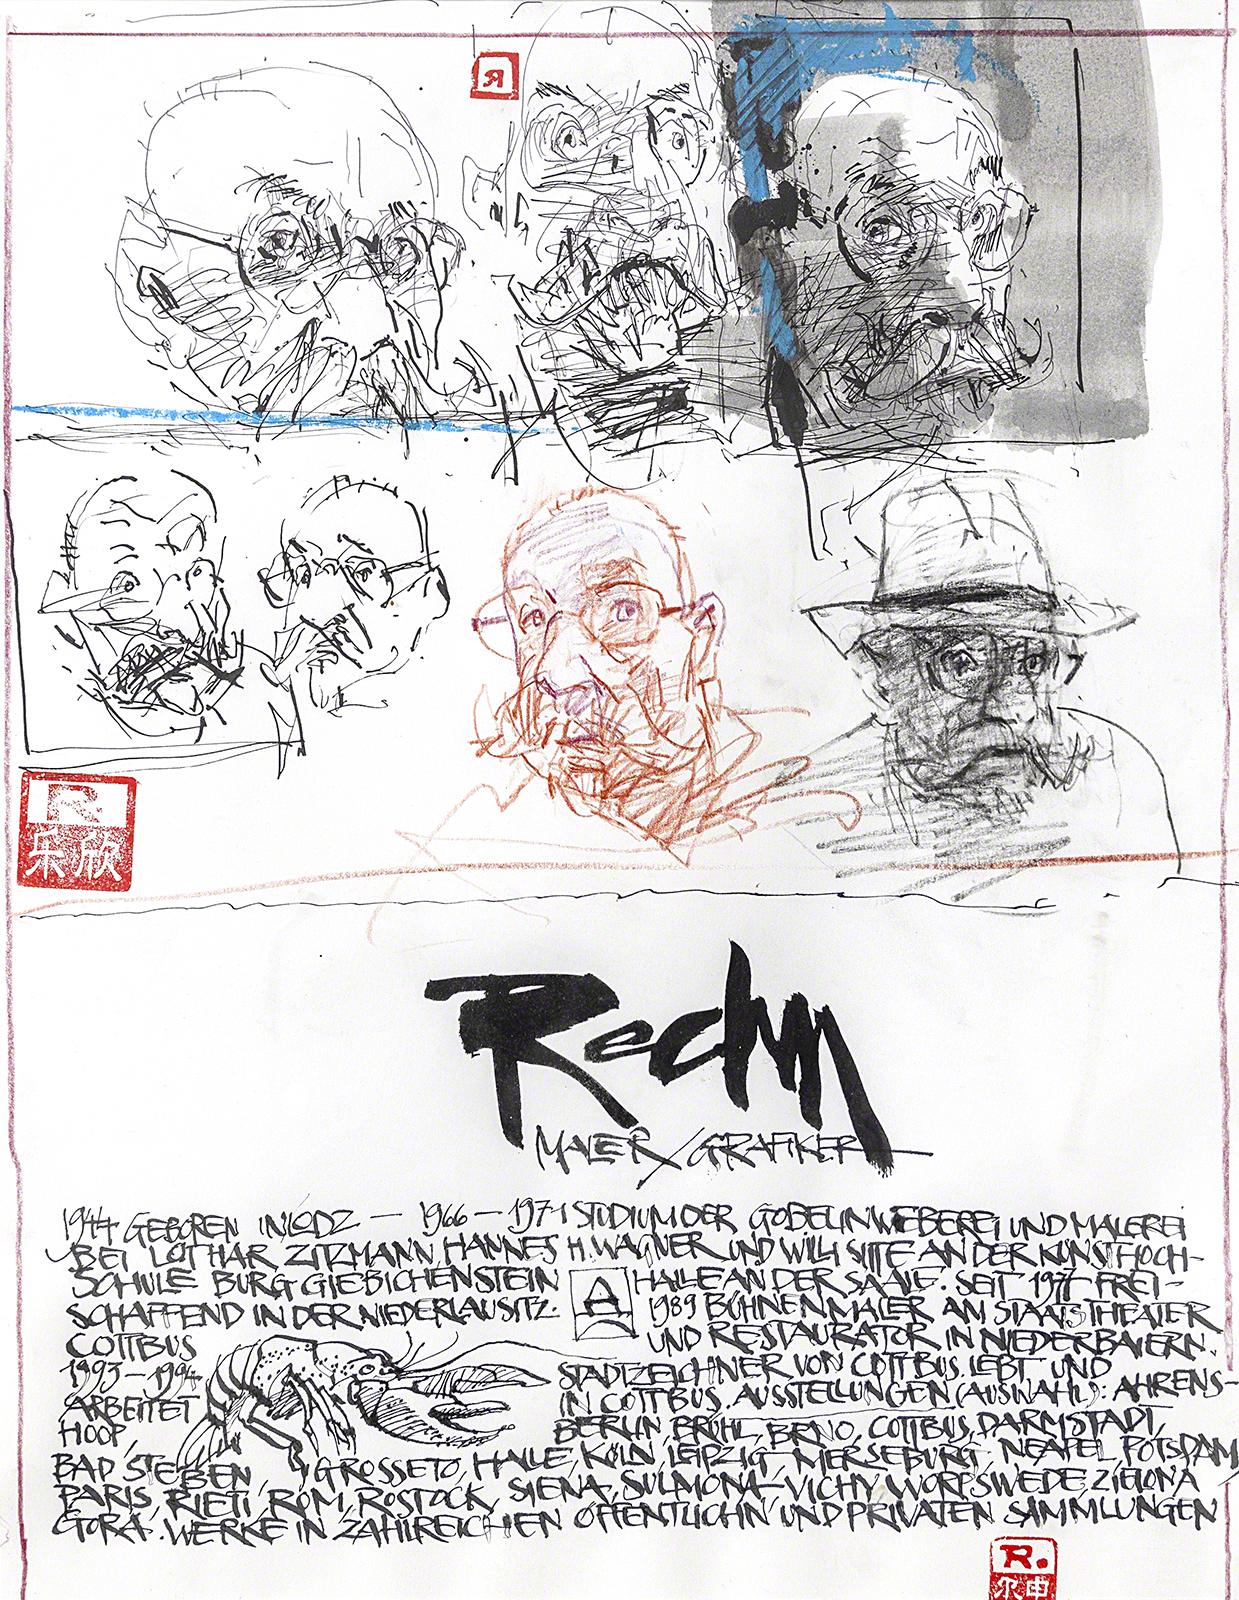 R
R.
乐欣
Rechn
MALER/GRAFIKER
1944 GEBOREN IN LODZ — 1966 — 1971 STUDIUM DER GOBELINWEBEREI UND MALEREI
BEI LOTHAR ZITZMANN, HANNES H. WAGNER UND WILLI SITTE AN DER KUNSTHOCH-
SCHULE BURG GIEBICHENSTEIN HALLE AN DER SAALE. SEIT 1971 FREI-
SCHAFFEND IN DER NIEDERLAUSITZ. 1989 BÜHNENMALER AM STAATSTHEATER
COTTBUS UND RESTAURATOR IN NIEDERBAIERN.
1993 — 1994 STADTZEICHNER VON COTTBUS. LEBT UND
ARBEITET IN COTTBUS. AUSSTELLUNGEN (AUSWAHL): AHRENS-
HOOP, BERLIN, BRÜHL, BRNO, COTTBUS, DARMSTADT,
BAD STEBEN, GROSSETO, HALLE, KÖLN, LEIPZIG, MERSEBURG, NEAPEL, POTSDAM
PARIS, RIETI, ROM, ROSTOCK, SIENA, SULMONA, VICHY WORPSWEDE ZIELONA
GORA. WERKE IN ZAHLREICHEN ÖFFENTLICHN UND PRIVATEN SAMMLUNGEN
R.